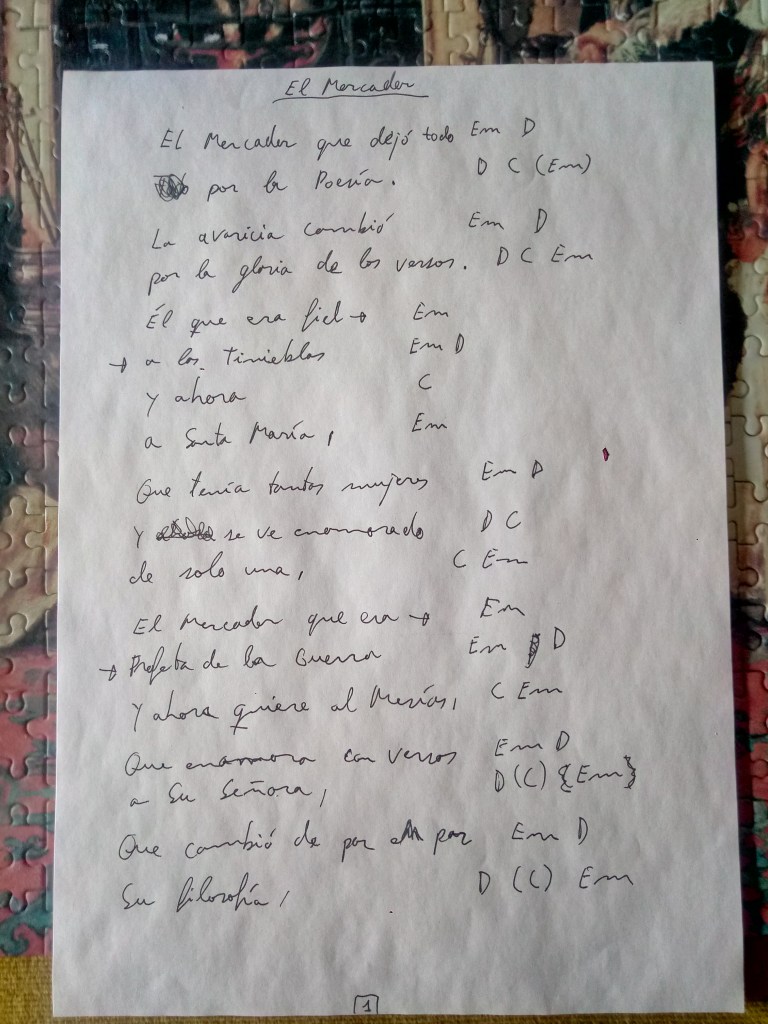 El Mercader
El Mercader que dejó todo Em D
por la Poesía. D C (Em)
La avaricia cambió Em D
por la gloria de los versos. D C Em
Él que era fiel → Em
→ a las Tinieblas Em D
Y ahora C
a Santa María, Em
Que tenía tantas mujeres Em D
Y se ve enamorado D C
de solo una, C Em
El Mercader que era → Em
→ Profeta de la Guerra Em D
Y ahora quiere al Mesías, C Em
Que enamora con versos Em D
a Su Señora, D (C) {Em}
Que cambió de par en par Em D
Su filosofía, D (C) Em
1